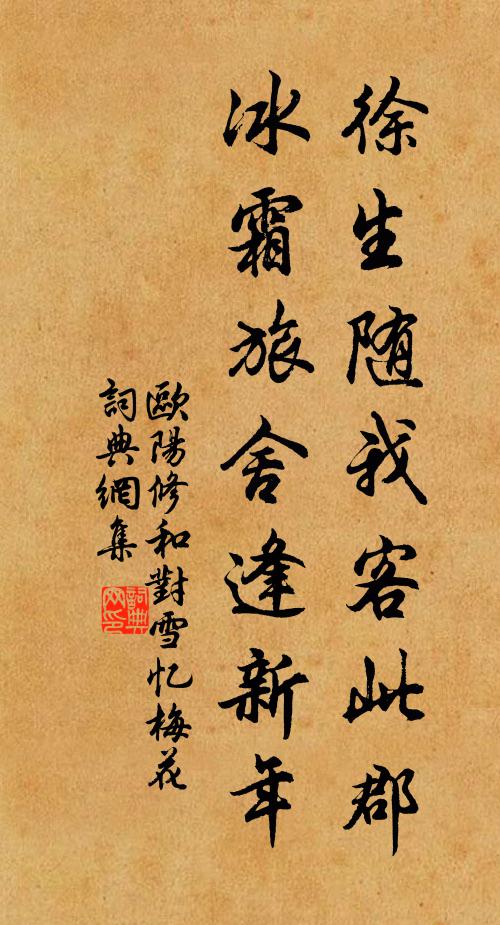 徐生随我客此郡
冰霜旅舍逢新年
歐陽修和對雪忆梅花
詞典網集
詞典网印